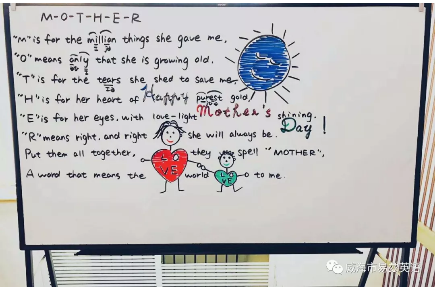 M-O-T-H-E-R
"M" is for the million things she gave me,
"O" means only that she is growing old,
"T" is for the tears she shed to save me,
"H" is for her heart of purest gold,
Happy
"E" is for her eyes, with love-light shining.
Mother's
"R" means right, and right she will always be.
Day!
Put them all together, they spell "MOTHER",
A word that means the world to me.
LO
VE
LO
VE